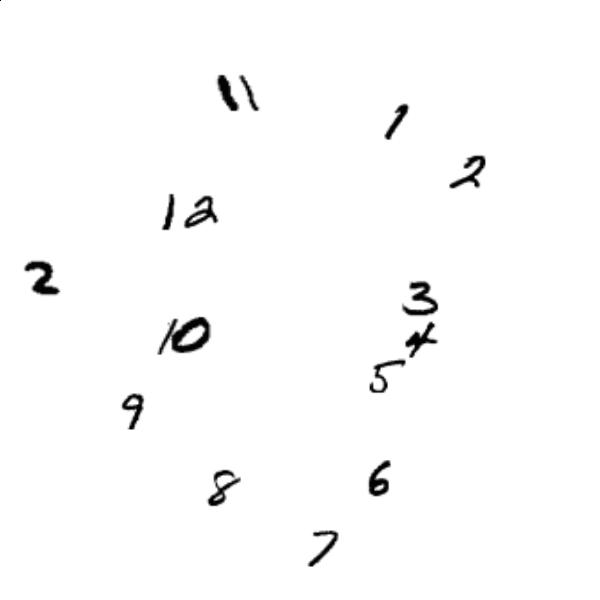 11
1
2
12
2
3
10
4
5
9
6
8
7